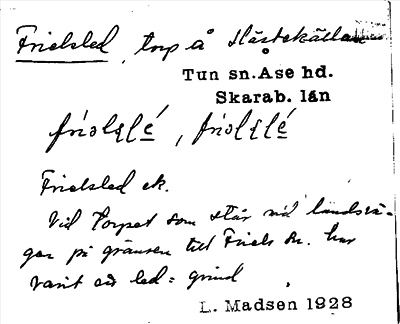 Frielsled, torp å Hästekällan
Tun sn. Åse hd.
Skarab. län
Frielsled ek.
Vid torpet som står vid landsvä-
gen på gränsen till Friels sn. har
varit en led = grind
L. Madsen 1928